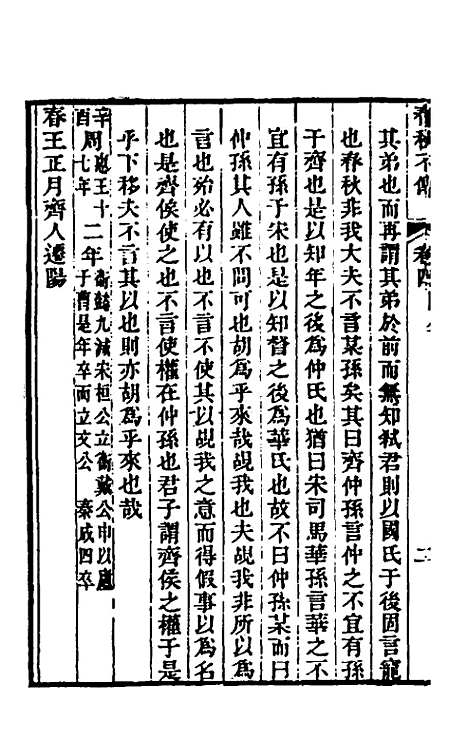 春秋不傳 卷四 二
其弟也而再謂其弟於前而無知弒君則以國氏于後固言寵
也春秋非我大夫不言某孫矣其曰齊仲孫言仲之不宜有孫
于齊也是以知年之後為仲氏也猶曰宋司馬華孫言華之不
宜有孫于宋也是以知督之後為華氏也故不曰仲孫某而曰
仲孫其人雖不問可也胡為乎來哉覘我也夫覘我非所以為
言也殆必有以也不言不使其以覘我之意而得假事以為名
也是齊侯使之也不言使權在仲孫也君子謂齊侯之權于是
乎下移夫不言其以也則亦胡為乎來也哉
辛酉 周惠王十七年 二年 衛懿九滅宋桓公立衛戴公申以廬于漕是年卒而立文公 秦成四卒
春王正月齊人遷陽